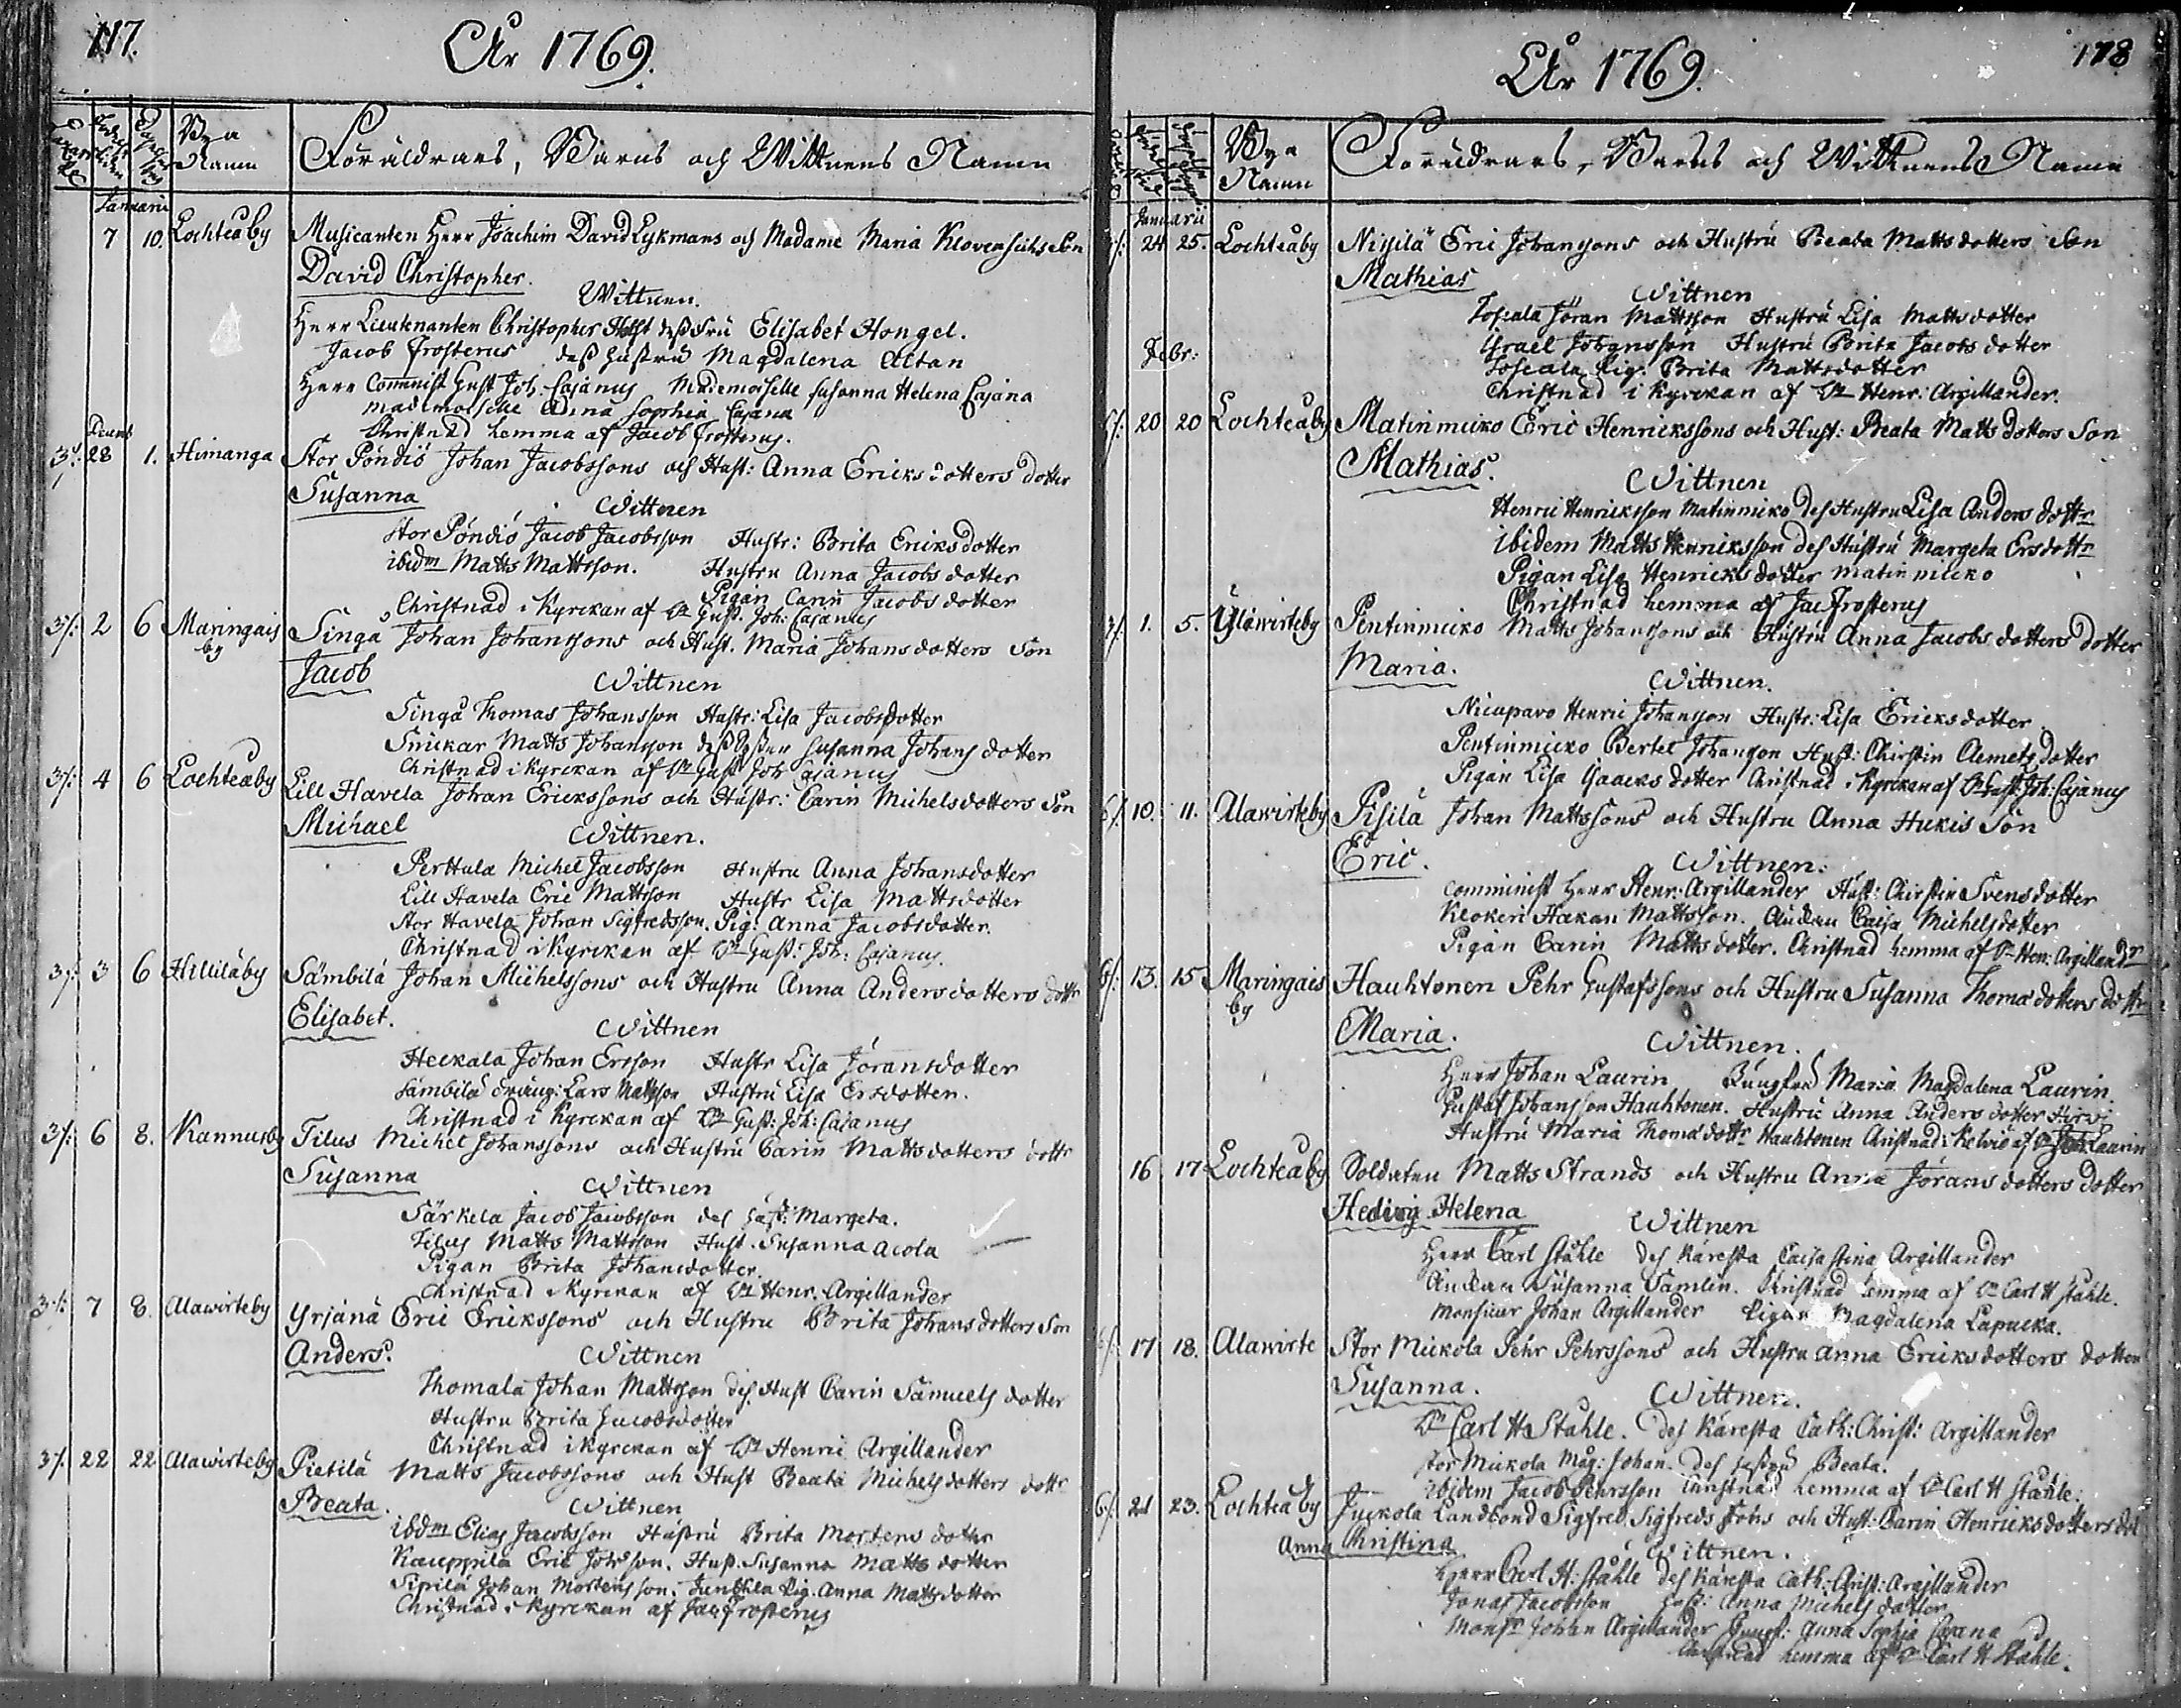 117.
År 1769.
Bya Namn
Föräldrars, Barns och Wittnens Namn
Januarii
7 10. Lochteåby Musicanten Herr Joachim David Lykmans och Madame Maria Son
David Christopher.
Wittnen.
Herr Lieutenanten Christopher dess fru Elisabet Hongel.
Jacob Frosterus dess hustru Magdalena Altan
Herr Comminist Gust Joh. Cajanus Mademoiselle Susanna Helena Cajana
mademoiselle Anna Sophia Cajana
Christnad hemma af Jacob Frosterus.
3/: 28 1. Himanga Stor Pöndiö Johan Jacobssons och Hust: Anna Ericksdotters dotter
Susanna
Wittnen
Stor Pöndiö Jacob Jacobsson Hustr: Brita Ericksdotter
ibidm Matts Mattsson. Hustru Anna Jacobs dotter
Pigan Carin Jacobs dotter
Christnad i Kyrckan af Vn Gust. Joh: Cajanus
3/: 2 6 Maringais by Singa Johan Johanssons och Hust. Maria Johansdotters Son
Jacob
Wittnen
Singa Thomas Johansson Hustr: Lisa Jacobsdotter
Snickar Matts Johansson Susanna Johans dotter
Christnad i Kyrckan af Vn Gust Joh Cajanus
3/: 4 6 Lochteåby Lill Havela Johan Erickssons och Hustr: Carin Michelsdotters Son
Michael
Wittnen.
Perttula Michel Jacobsson Hustru Anna Johansdotter
Lill Havela Eric Mattsson Hustr Lisa Mattsdotter
Stor Havela Johan Sigfredsson. Pig: Anna Jacobsdotter.
Christnad i Kyrckan af Vn Gust: Joh: Cajanus.
3/: 3 6 Hilliläby Sämbilä Johan Michelssons och Hustru Anna Andersdotters dottr
Elisabet.
Wittnen
Heickala Johan Ersson Hustr Lisa Jöransdotter
Sämbilä dräng: Lars Mattsson Hustru Lisa Ersdotter.
Christnad i Kyrckan af Vn Gust: Joh: Cajanus
3/: 6 8. Kannusby Tilus Michel Johanssons och Hustru Carin Mattsdotters dottr
Susanna
Wittnen
Särkela Jacob Jacobsson des Hust: Margeta.
Tilus Matts Mattsson Hust. Susanna Acola
Pigan Brita Johansdotter.
Christnad i Kyrckan af Vn Henr. Argillander
3/: 7 8. Alawirteby Yrjänä Eric Erickssons och Hustru Brita Johansdotters Son
Anders.
Wittnen
Thomala Johan Mattsson des Hust Carin Samuels dotter
Hustru Brita Jacobsdotter
Christnad i Kyrckan af Vn Henric Argillander
3/. 22 22 Alawirteby Pietilä Matts Jacobssons och Hust Beata Michelsdotters dottr
Beata.
Wittnen
ibdm Elias Jacobsson Hustru Brita Mortens dotter
Kauppila Eric Johsson. Hust. Susanna Matts dotter
Sipilä Johan Mortensson. Pig. Anna Mattsdotter
Christnad i Kyrckan af Jac Frosterus
178
År 1769.
Bya Namn
Föräldrars, Barns och Wittnens Namn
Januarii
24 25. Lochteåby Eric Johanssons och Hustru Beata Mattsdotters Son
Mathias
Wittnen
Toscala Jöran Mattsson Hustru Lisa Mattsdotter
Israel Johansson Hustru Brita Jacobsdotter
Toscala Pig: Brita Mattsdotter
Christnad i Kyrckan af Vn Henr: Argillander.
Febr:
20 20 Lochteåby Matinmicko Eric Henrickssons och Hust: Beata Matts dotters Son
Mathias.
Wittnen
Henric Henricksson Matinmicko des Hustru Lisa Anders dottr
ibidem Matts Henricksson des Hustru Margeta Ersdottr
Pigan Lisa Henricks dotter Matinmicko
Christnad hemma af Jac Frosterus
1. 5. Yläwirteby Pentinmicko Matts Johanssons och Hustru Anna Jacobs dotters dotter
Maria.
Wittnen.
Henric Johansson Hustr: Lisa Ericksdotter
Pentinmicko Bertel Johansson Hust: Chirstin Clemets dotter
Pigan Lisa Isaacks dotter Christnad i Kyrckan af Vn Gust: Joh: Cajanus
6/: 10. 11. Alawirteby Pisilä Johan Mattssons och Hustru Anna Huckis Son
Eric.
Wittnen:
Comminist Herr Henr: Argillander Hust: Chirstin Svensdotter
Klokeri Hakan Mattsson. Änckan Caisa Michelsdotter
Pigan Carin Matts dotter. Christnad hemma af Vn Hen: Argillandr
6/: 13. 15 Maringais by Hauhtonen Pehr Gustafssons och Hustru Susanna Thomædotters dottr
Maria.
Wittnen.
Herr Johan Laurin Jungfru Maria Magdalena Laurin.
Gustaf Johansson Hauhtonen. Hustru Anna Anders dotter Hirvi
Hustru Maria Thomædottr Hauhtonen Christnad i Kelviå af Vn Joh: Laurin
16 17 Lochteåby Soldaten Matts Strands och Hustru Anna Jörans dotters dotter
Hedvig Helena
Wittnen
Herr Carl Ståhle des Käresta Caisa Stina Argillander
Änckan Susanna Samlin. Christnad hemma af Vn Carl H Ståhle.
Monsieur Johan Argillander Pigan Magdalena Lapucka.
17 18. Alawirte Stor Mickola Pehr Pehrssons och Hustru Anna Ericksdotters dotter
Susanna.
Wittnen.
Vn Carl H Ståhle. des Käresta Cath: Christ: Argillander
Stor Mickola Måg: Johan. des hustru Beata.
ibidem Jacob Pehrsson Christnad hemma af Vn Carl H Ståhle:
6/: 21 23. Lochteåby Juckola Landbond Sigfred Sigfreds Sons och Hust: Carin Henricksdotters dot
Anna Christina
Wittnen.
Herr Carl H: Ståhle des Käresta Cath: Christ: Argillander
Jonas Jacobsson Hust: Anna Michels dotter
Monsr Johan Argillander Jungf: Anna Sophia Cajana
Christnad hemma af Vn Carl H Ståhle.